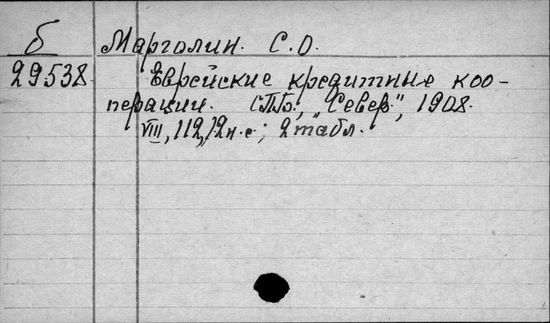 б Марголин. С.О.
29538. Еврейские кредитные коо-
перации. СПБ, "Север", 1908.
VIII, 112, /2н.с; 2 табл.